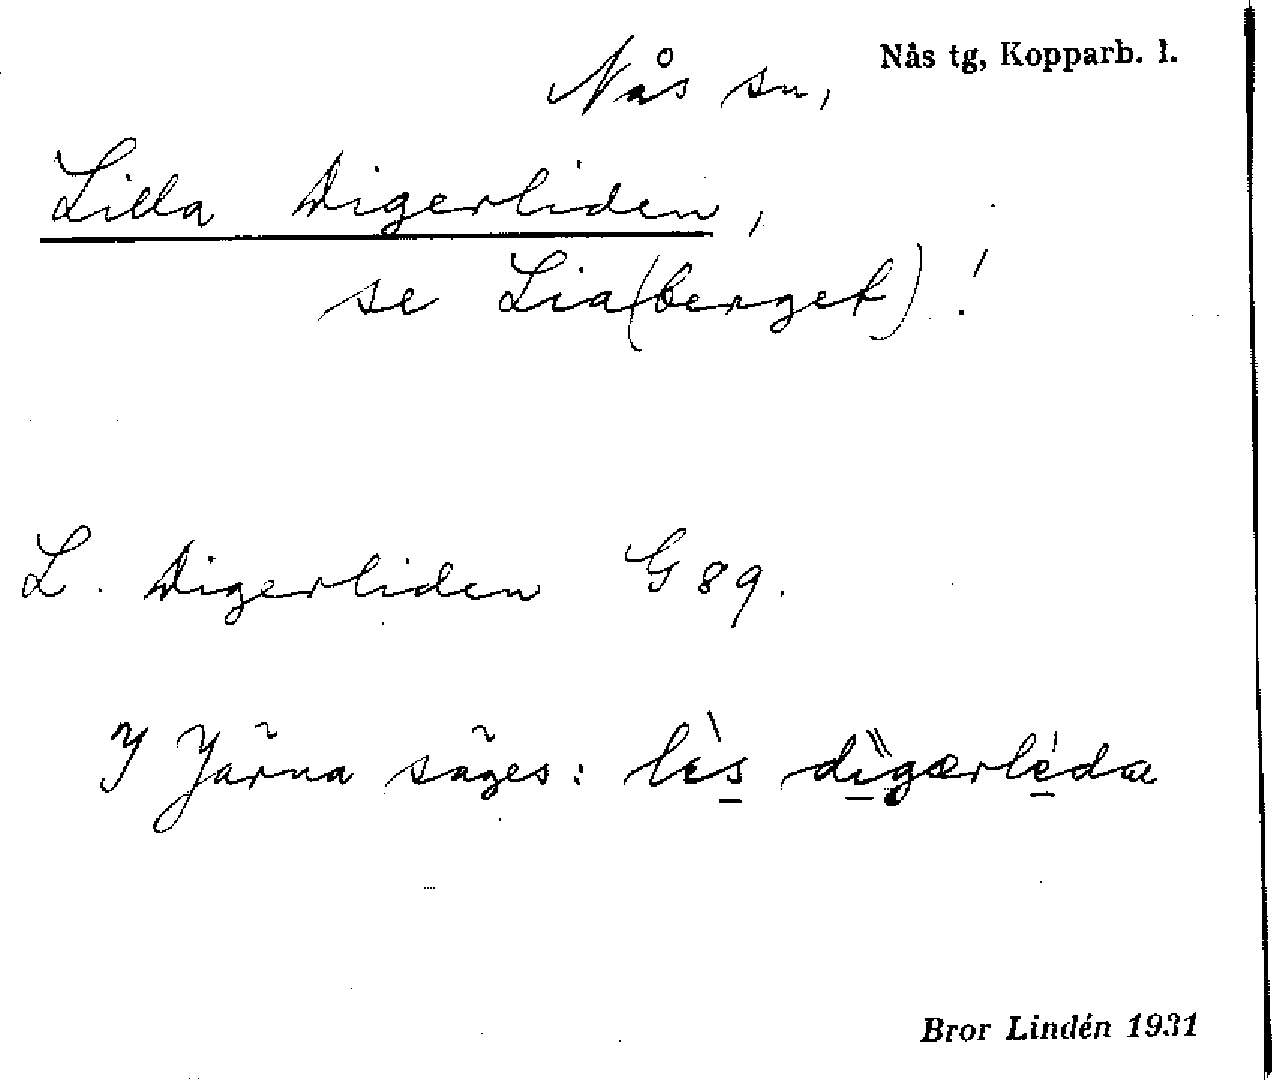 Nås tg, Kopparb. l.
Nås sn,
Lilla Digerliden,
se Lia(berget)!
L. Digerliden G 89.
I Järna säges: lìs dìgærléda
Bror Lindén 1931